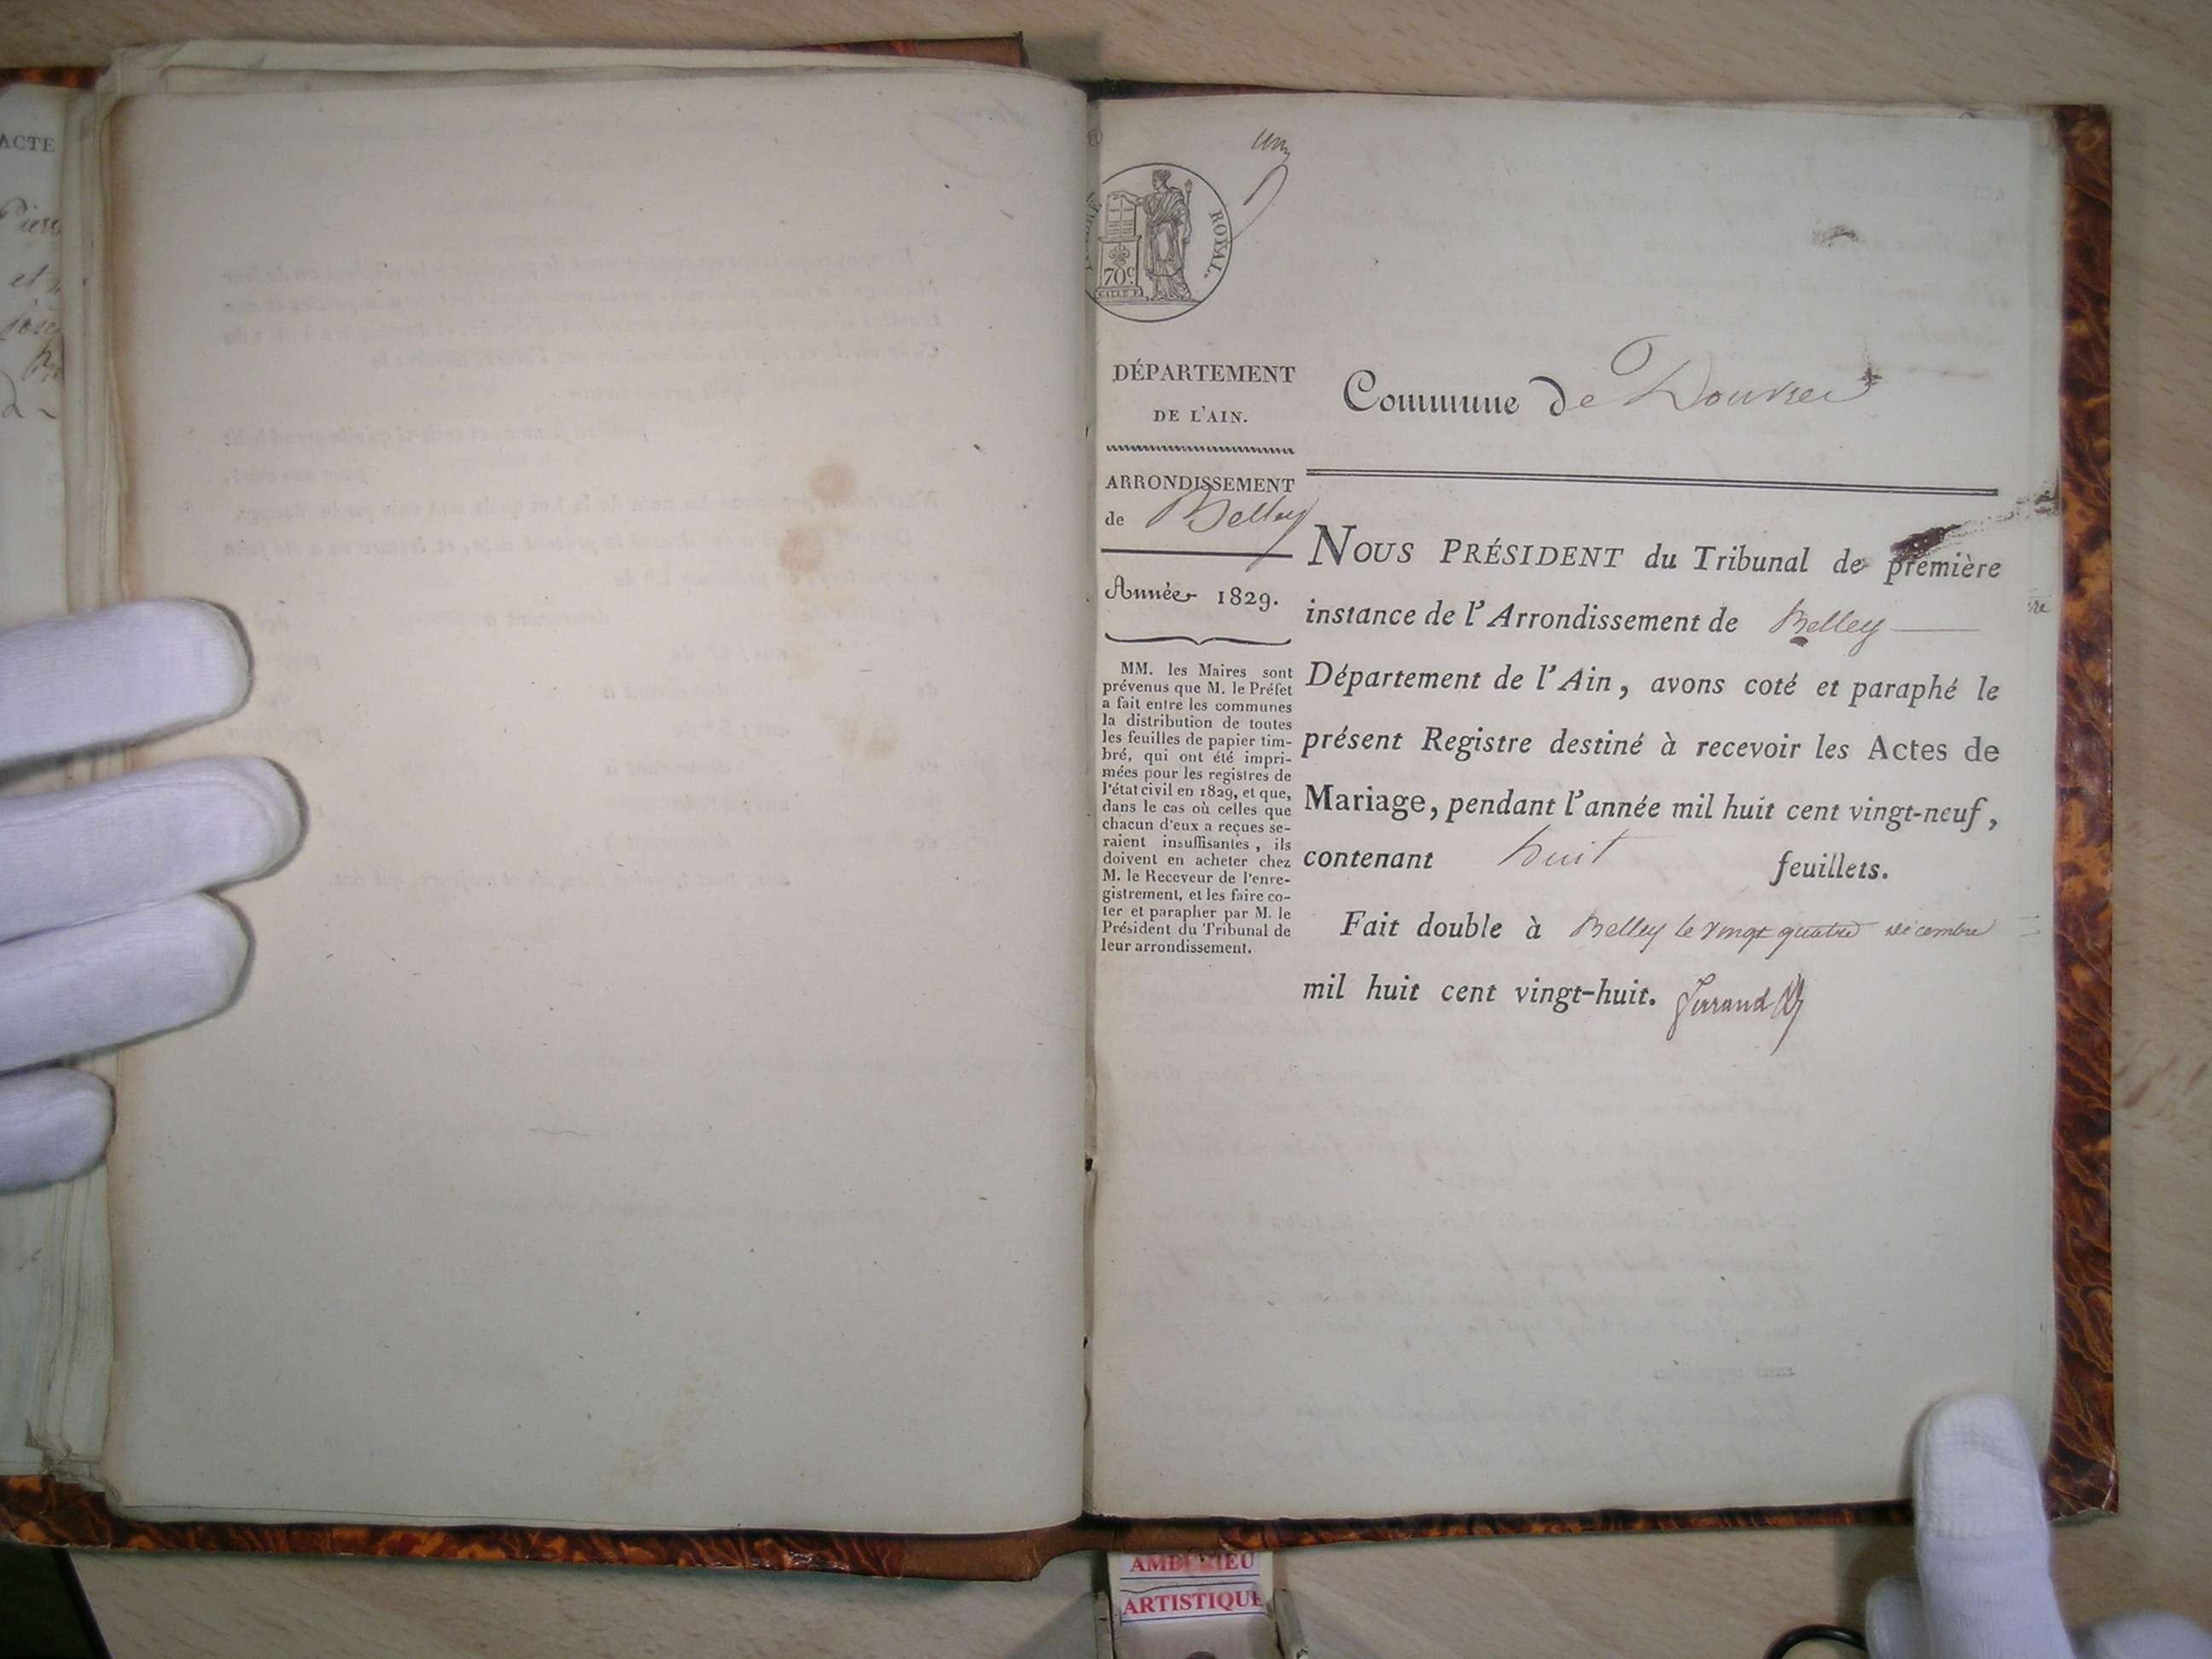 ACTE
et
un
ROYAL.
70 c
DÉPARTEMENT
DE L'AIN.
ARRONDISSEMENT
de Belley
Année 1829.
MM. les Maires sont
prévenus que M. le Préfet
a fait entre les communes
la distribution de toutes
les feuilles de papier tim-
bré, qui ont été impri-
mées pour les registres de
l'état civil en 1829, et que,
dans le cas où celles que
chacun d'eux a reçues se-
raient insuffisantes, ils
doivent en acheter chez
M. le Receveur de l'enre-
gistrement, et les faire co-
ter et parapher par M. le
Président du Tribunal de
leur arrondissement.
Commune de Douvres
NOUS PRÉSIDENT du Tribunal de première
instance de l'Arrondissement de Belley
Département de l'Ain, avons coté et paraphé le
présent Registre destiné à recevoir les Actes de
Mariage, pendant l'année mil huit cent vingt-neuf,
contenant huit feuillets.
Fait double à Belley le vingt quatre décembre
mil huit cent vingt-huit.
AMBERIEU
ARTISTIQUE